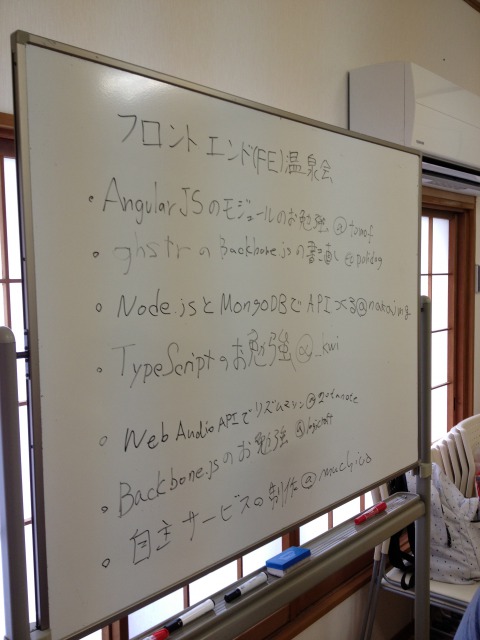 フロントエンド(FE)温泉会
・AngularJSのモジュールのお勉強 @tomof
・ghstrのBackbone.jsの書き直し @pokdog
・Node.jsとMongoDBでAPIつくる@nakajmg
・TypeScriptのお勉強 @_kwi
・Web Audio APIでリズムマシン
・Backbone.jsのお勉強
・自主サービスの制作 @muchico